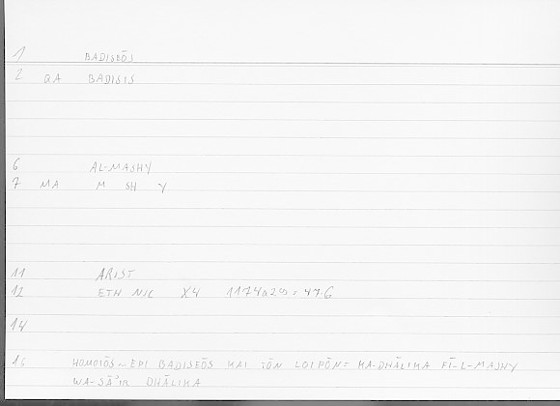 1 BADISEŌS
2 QA BADISIS
6 AL-MASHY
7 MA M SH Y
11 ARIST
12 ETH NIC X4 1174a29 = 476
14
16 HOMOIŌS ~ EPI BADISEŌS KAI TŌN LOIPŌN = KA-DHĀLIKA FĪ-L-MASHY
WA-SĀʾIR DHĀLIKA